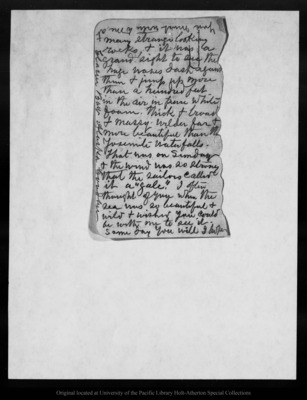 many strange looking
rocks, & it was a
grand sight to see the
huge waves dash against
them & jump up more
than a hundred feet
in the air in pure white
foam. Thick & broad
& massy. Wilder far &
more beautiful than the
Yosemite waterfalls.
That was on Sunday
& the wind was so strong
that the sailors called
it a "gale." I often
thought of you when the
sea was so beautiful &
wild & wished you could
be with me to see it.
Some day you will I hope
Original located at University of the Pacific Library Holt-Atherton Special Collections